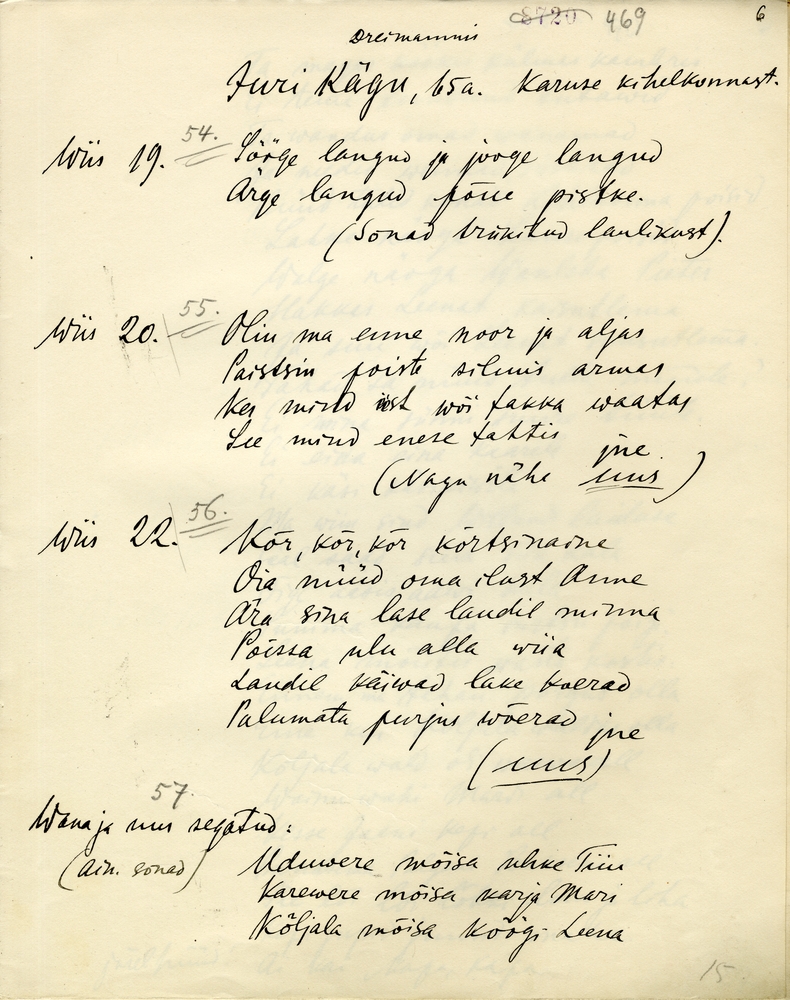 8720 469
6
Dreimannis
Juri Kägu, 65a. Karuse kihelkonnast.
54.
Wiis 19. Sööge langud ja jooge langud
Ärge langud põue pistke.
(Sõnad trükitud laulikust).
55.
Wiis 20. Olin ma enne noor ja aljas
Paistsin poiste silmis armas
Kes mind ist wõi takka waatas
See mind enese tahtis jne.
(Nagu nähe uus)
56.
Wiis 22. Kõr, kõr, kõr kõrtsinaine
Oia nüüd oma ilust Anne
Ära sina lase laudil minna
Põissa ulu alla wiia
Laudil käiwad lake koerad
Palumata purjus wõerad jne
(uus)
57
Wana ja uus segatud:
(Ain. sonad) Uduwere mõisa uhke Tiiu
Karewere mõisa karja Mari
Kõljala mõisa köögi Leena
15.